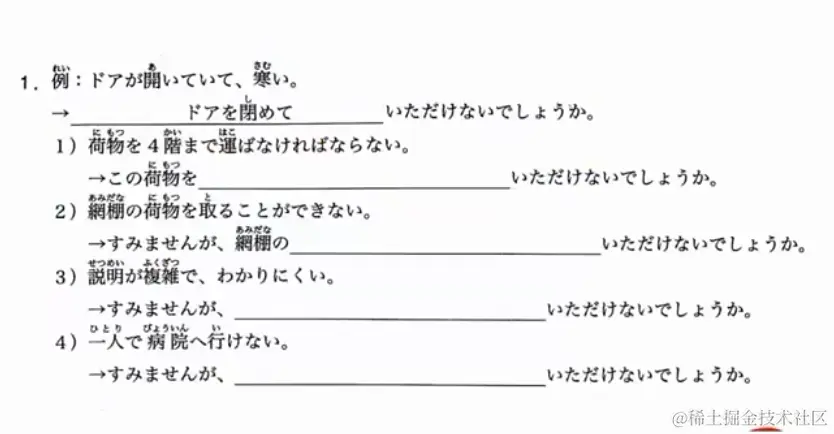 1. 例：ドアが開いていて、寒い。
→ドアを閉めていただけないでしょうか。
1）荷物を4階まで運ばなければならない。
→この荷物を＿＿＿＿＿＿いただけないでしょうか。
2）網棚の荷物を取ることができない。
→すみませんが、網棚の＿＿＿＿＿＿いただけないでしょうか。
3）説明が複雑で、わかりにくい。
→すみませんが、＿＿＿＿＿＿いただけないでしょうか。
4）一人で病院へ行けない。
→すみませんが、＿＿＿＿＿＿いただけないでしょうか。
@稀土掘金技术社区